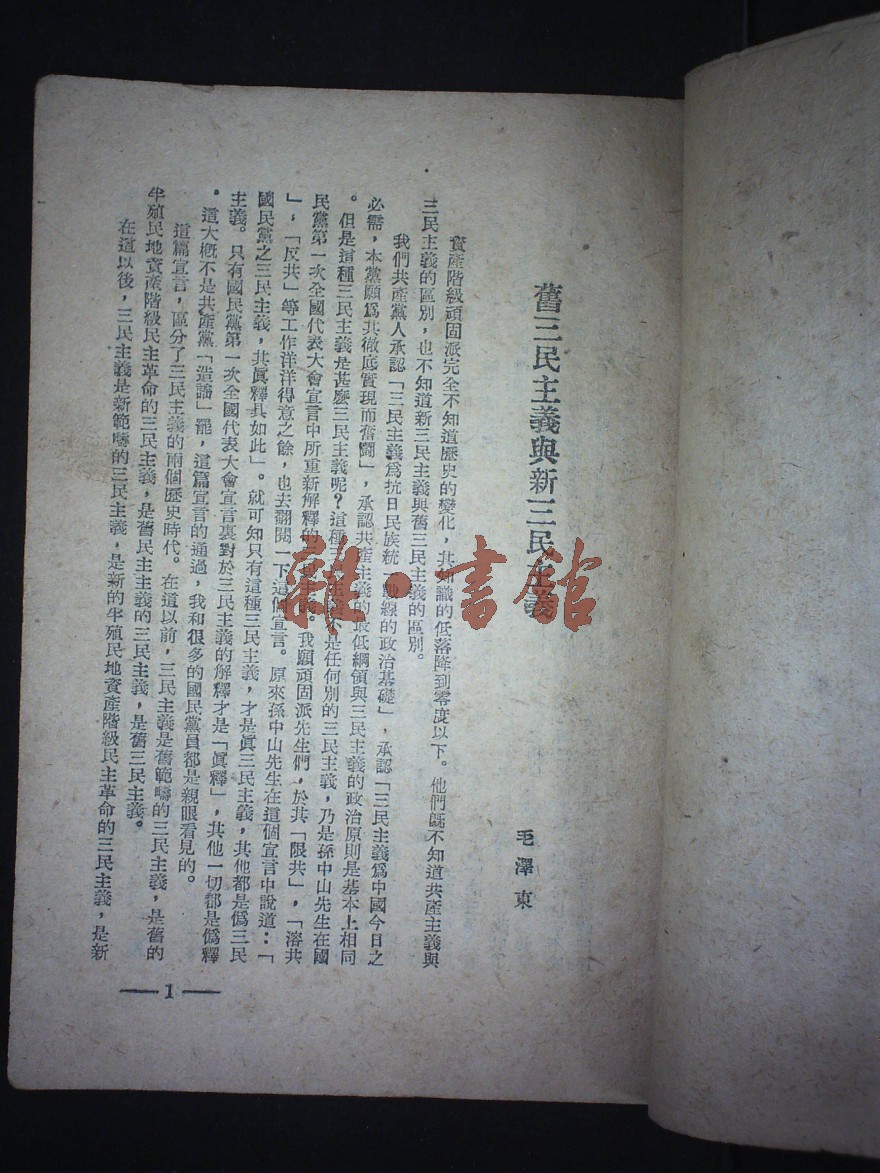 舊三民主義與新三民主義
毛澤東
資產階級頑固派完全不知道歷史的變化，其知識的低落降到零度以下。他們旣不知道共產主義與
三民主義的區別，也不知道新三民主義與舊三民主義的區別。
我們共產黨人承認「三民主義爲抗日民族統　戰線的政治基礎」，承認「三民主義爲中國今日之
必需，本黨願爲其徹底實現而奮鬪」，承認共產主義的最低綱領與三民主義的政治原則是基本上相同
。但是這種三民主義是甚麽三民主義呢？這種三民主義不是任何別的三民主義，乃是孫中山先生在國
民黨第一次全國代表大會宣言中所重新解釋的三民主義。我願頑固派先生們，於共「限共」，「溶共
」，「反共」等工作洋洋得意之餘，也去翻閱一下這個宣言。原來孫中山先生在這個宣言中說道：「
國民黨之三民主義，其眞釋具如此」。就可知只有這種三民主義，才是眞三民主義，其他都是僞三民
主義。只有國民黨第一次全國代表大會宣言裏對於三民主義的解釋才是「眞釋」，其他一切都是僞釋
。這大槪不是共產黨「造謠」罷，這篇宣言的通過，我和很多的國民黨員都是親眼看見的。
這篇宣言，區分了三民主義的兩個歷史時代。在這以前，三民主義是舊範疇的三民主義，是舊的
半殖民地資產階級民主革命的三民主義，是舊民主主義的三民主義，是舊三民主義。
在這以後，三民主義是新範疇的三民主義，是新的半殖民地資產階級民主革命的三民主義，是新
— 1 —
雜·書館